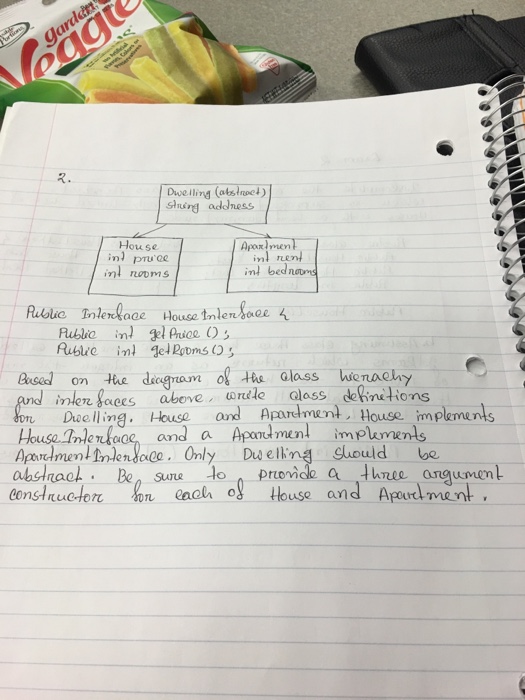 Portions
garden
Veggie
2.
Dwelling (abstract)
string address
House
int price
int rooms
Apartment
int rent
int bedrooms
Public Interface House Interface {
Public int getPrice ();
Public int getRooms();
Based on the diagram of the class hierachy
and interfaces above, write class definitions
for Dwelling, House and Apartment, House implements
House Interface, and a Apartment implements
Apartment Interface. Only Dwelling should be
abstract. Be sure to provide a three argument
constructor for each of House and Apartment.